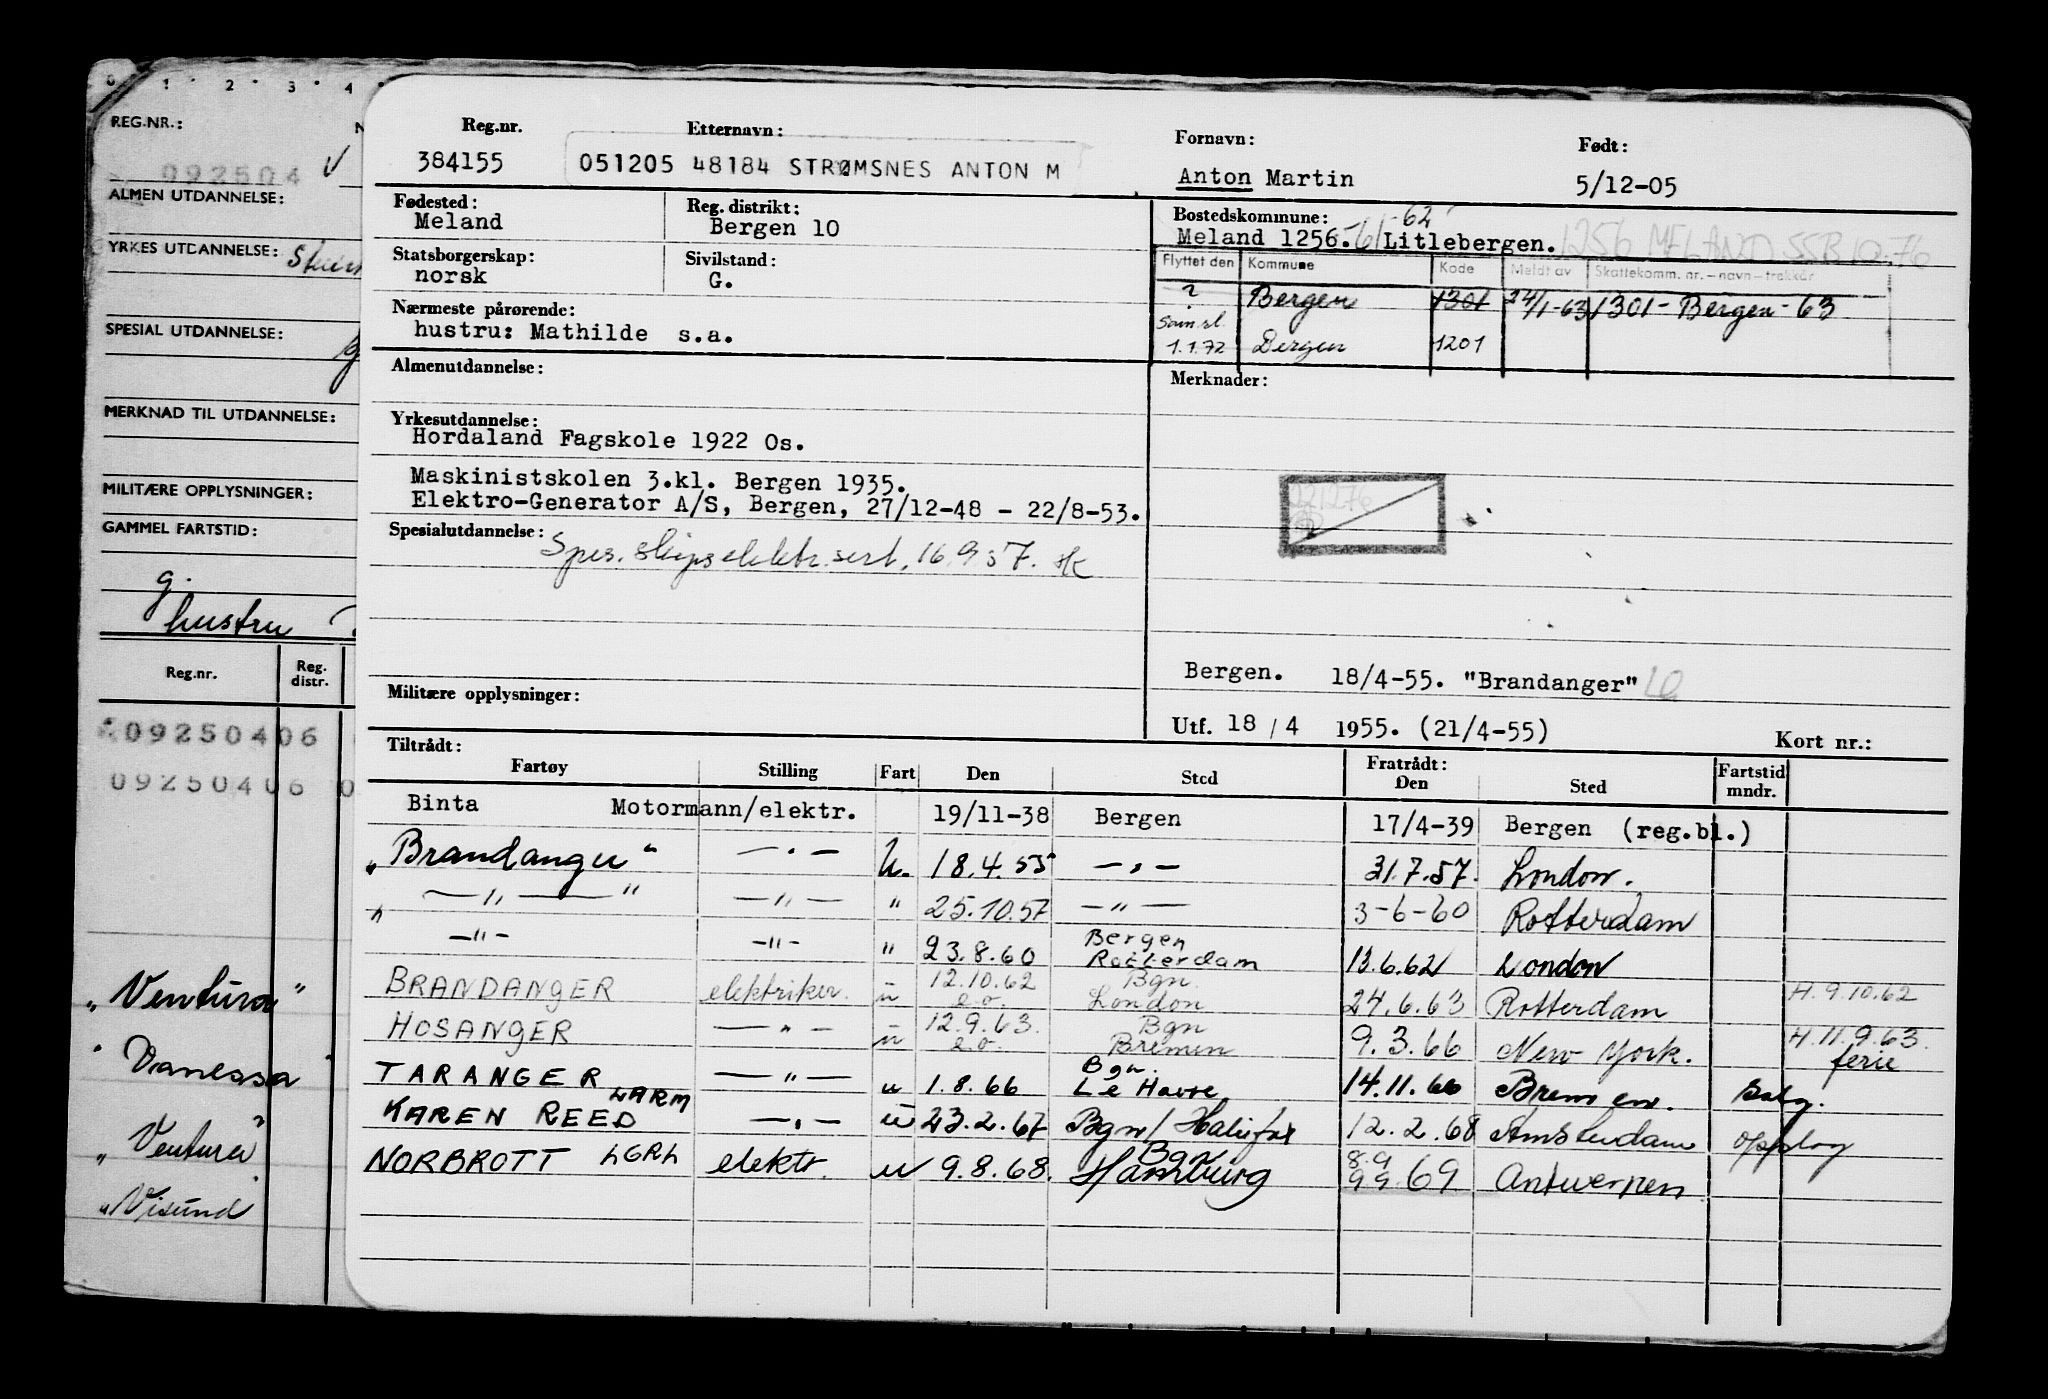 0 1 2 3 4
REG.NR.:
092504 V
ALMEN UTDANNELSE:
YRKES UTDANNELSE:
SPESIAL UTDANNELSE:
MERKNAD TIL UTDANNELSE:
MILITÆRE OPPLYSNINGER:
GAMMEL FARTSTID:
g.
hustru
Reg.nr. Reg. distr.
09250406
09250406 0
"Ventura"
"Vanessa"
"Ventura"
"Visund
Reg.nr. Etternavn: Fornavn: Født:
384155 051205 48184 STRØMSNES ANTON M Anton Martin 5/12-05
Fødested: Reg. distrikt: Bostedskommune: -62
Meland Bergen 10 Meland 1256.-61 Litlebergen. 1256 MELAND SSB 10.76
Statsborgerskap: Sivilstand: Flyttet den Kommune Kode Meldt av Skattekomm. nr. – navn – trekkår
norsk G. ? Bergen 1301 24/1-63 1301 - Bergen - 63
Nærmeste pårørende: Sam.sl.
hustru: Mathilde s.a. 1.1.72 Bergen 1201
Almenutdannelse: Merknader:
Yrkesutdannelse:
Hordaland Fagskole 1922 Os.
Maskinistskolen 3.kl. Bergen 1935.
Elektro-Generator A/S, Bergen, 27/12-48 - 22/8-53.
221276
Spesialutdannelse: Spes. skipselektr. sert. 16.9.57. HK
Bergen. 18/4-55. "Brandanger"
Militære opplysninger:
Utf. 18/4 1955. (21/4-55) Kort nr.:
Tiltrådt: Fratrådt: Fartstid
Fartøy Stilling Fart Den Sted Den Sted mndr.
Binta Motormann/elektr. 19/11-38 Bergen 17/4-39 Bergen (reg.bl.)
"Brandanger" — " — U. 18.4.55 — " — 31.7.57. London.
" — " — " — " — " 25.10.57 — " — 3-6-60 Rotterdam
— " — — " — " 23.8.60 Bergen Rotterdam 13.6.62 London
BRANDANGER elektriker. u 12.10.62 e.o. Bgn. London 24.6.63 Rotterdam H. 9.10.62
HOSANGER — " — u 12.9.63. e.o. Bgn Bremen 9.3.66 New York. H.11.9.63. ferie
TARANGER — " — u 1.8.66 Bgn. Le Havre 14.11.66 Bremen. Salg.
KAREN REED LARM — " — u 23.2.67 Bgn/Halifax 12.2.68 Amsterdam opplag
NORBROTT LGRL elektr. u 9.8.68. Bgn Hamburg 8.9 9.9.69 Antwerpen